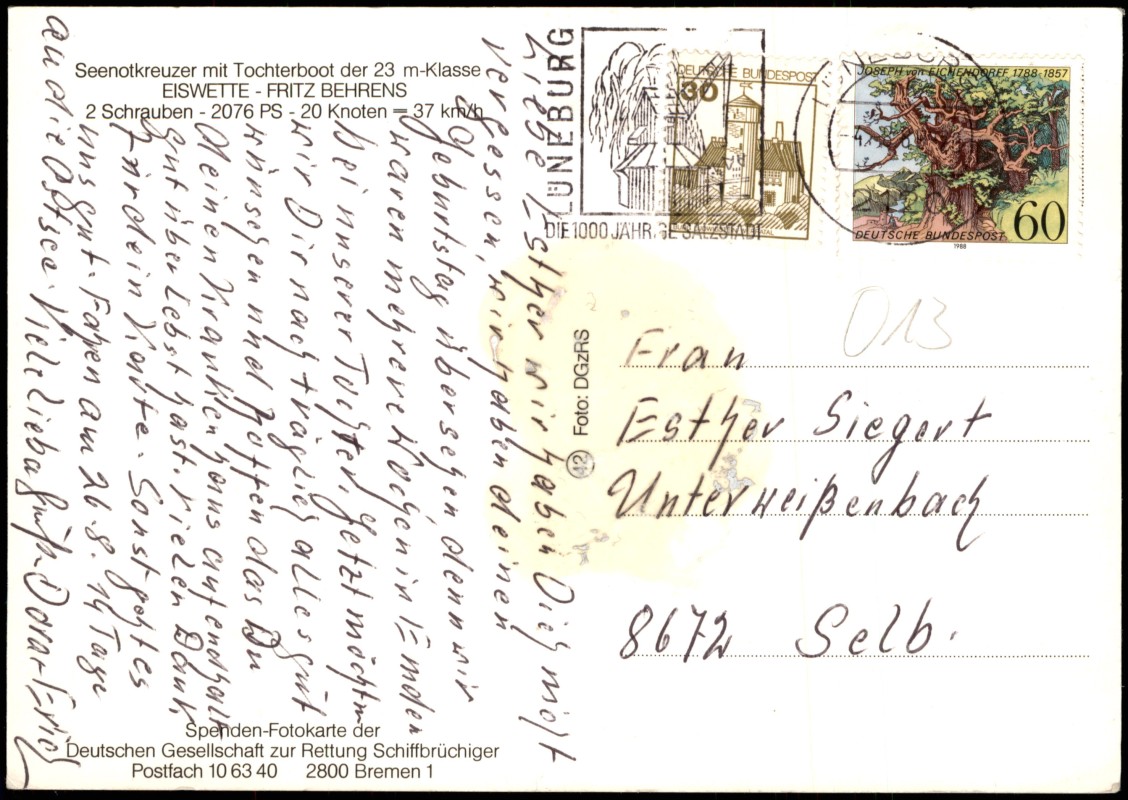 Seenotkreuzer mit Tochterboot der 23 m-Klasse
EISWETTE - FRITZ BEHRENS
2 Schrauben - 2076 PS - 20 Knoten = 37 km/h
Liebe Esther wir haben Dich nicht
vergessen, wir haben deinen
Geburtstag übersehen denn wir
waren mehrere Wochen in Emden
bei unserer Tochter. Jetzt möchten
wir Dir nachträglich alles gute
wünschen und hoffen das Du
deinen Krankenhausaufendhalt
gut überlebst hast. vielen Dank
für dein Karte. Sonst geht es
uns gut. Fahren am 26.8. 14 Tage
an die Ostsee. Viele liebe Grüße Dora-Erich
Spenden-Fotokarte der
Deutschen Gesellschaft zur Rettung Schiffbrüchiger
Postfach 10 63 40 2800 Bremen 1
42 Foto: DGzRS
LÜNEBURG
DIE 1000 JÄHRIGE SALZSTADT
DEUTSCHE BUNDESPOST
30
LÜNEBURG
JOSEPH von EICHENDORFF 1788-1857
DEUTSCHE BUNDESPOST
60
1988
D13
Frau
Esther Siegert
Unterweißenbach
8672 Selb.